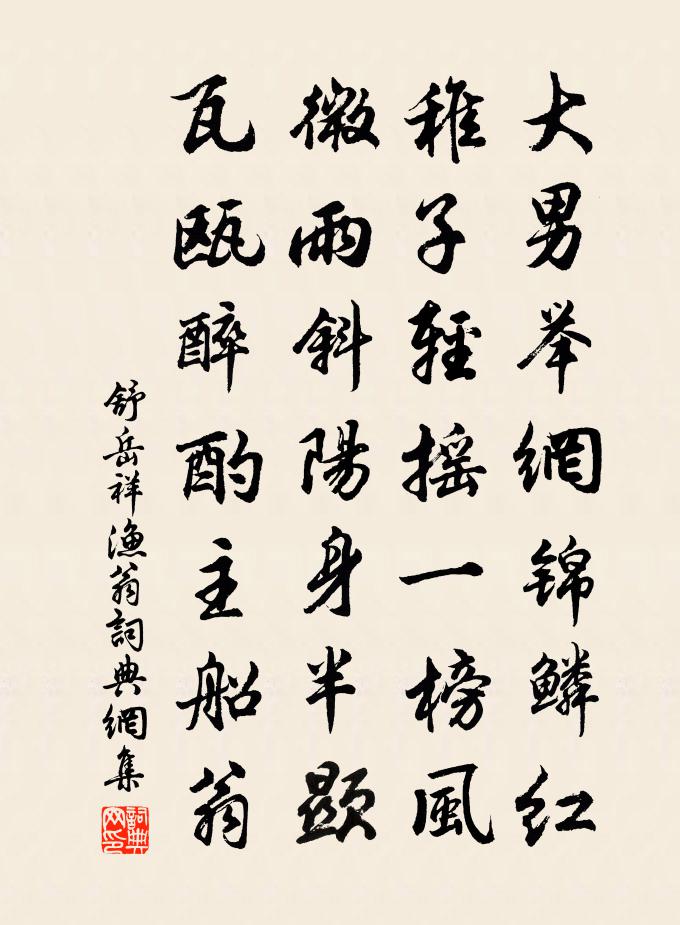 大男举網锦鳞红
稚子輕摇一榜風
微雨斜陽身半顯
瓦甌醉酌主船翁
舒岳祥漁翁詞典網集
詞典网印